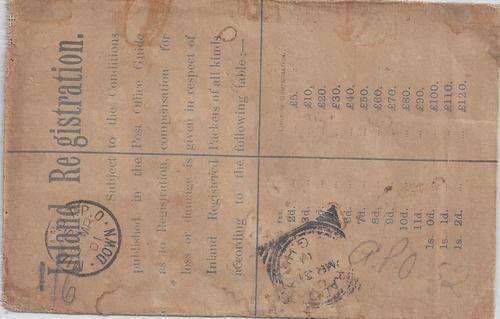 Inland Registration.
Subject to the Conditions
published in the Post Office Guide
as to Registration, compensation for
loss or damage is given in respect of
Inland Registered Packets of all kinds
according to the following table:—
Fee. LIMIT OF COMPENSATION.
2d. ... £5.
3d. ... £10.
£20.
£30.
6d. ... £40.
7d. ... £50.
8d. ... £60.
9d. ... £70.
10d. ... £80.
11d. ... £90.
1s. 0d. ... £100.
1s. 1d. ... £110.
1s. 2d. ... £120.
GPO